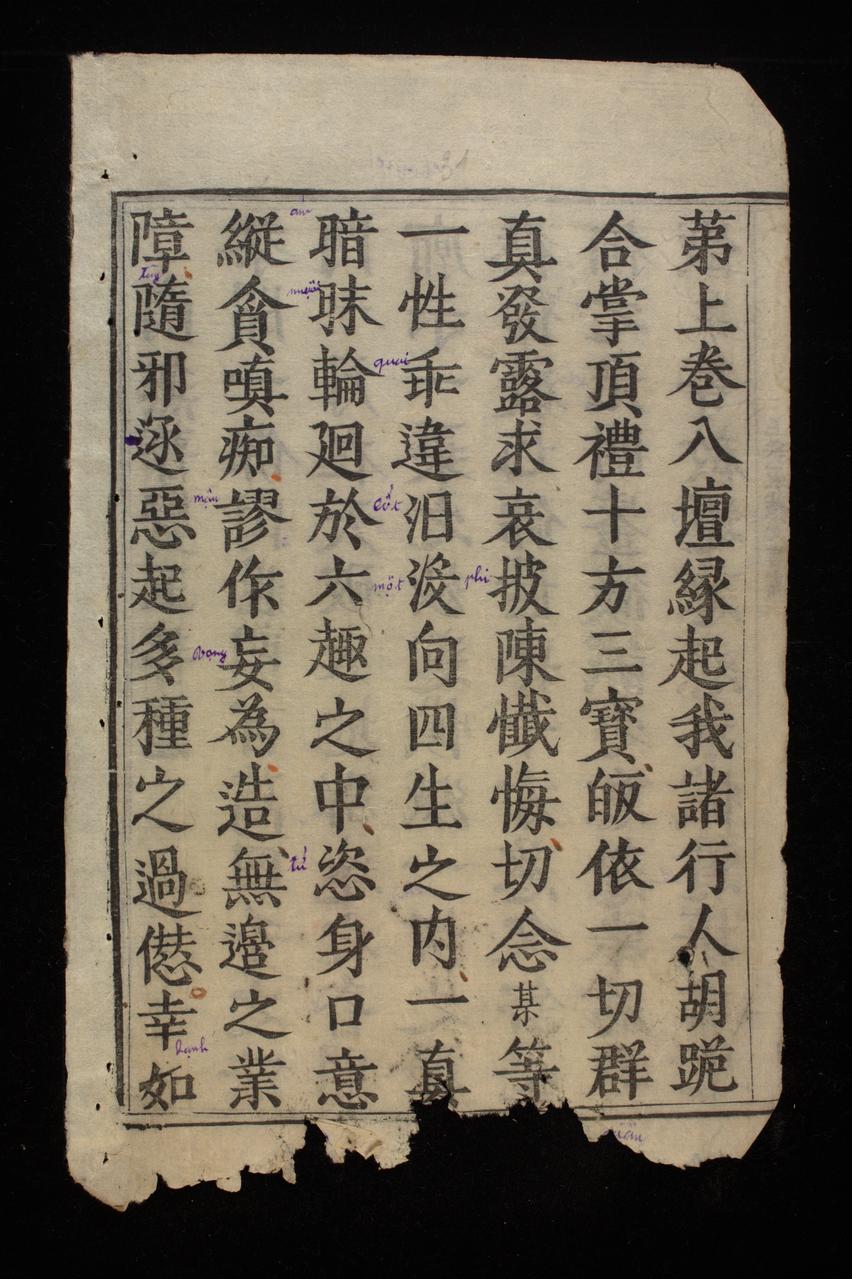 苐上巻八壇縁起我諸行人胡跪
合掌頂禮十方三寳皈依一切群
真發露求哀披陳懺悔切念某等
一性乖違汩没向四生之内一真
暗昧輪廻於六趣之中恣身口意
縱貪嗔痴謬作妄為造無邉之業
障隨邪逐惡起多種之過愆幸如
quai
cốt
một
phi
muội
mậu
vọng
tứ
tùy
hạnh